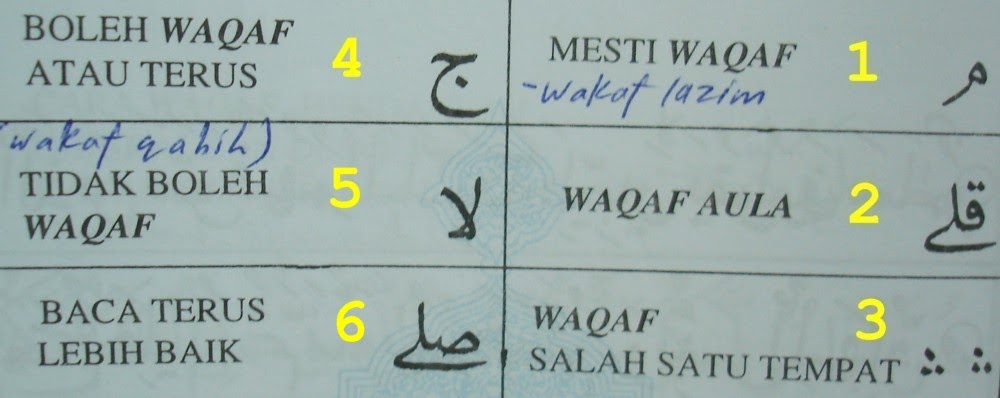 MESTI WAQAF 1 م
-wakaf lazim
WAQAF AULA 2 قلے
WAQAF 3
SALAH SATU TEMPAT ∴ ∴
BOLEH WAQAF 4 ج
ATAU TERUS
(wakaf qabih)
TIDAK BOLEH 5 لا
WAQAF
BACA TERUS 6 صلے
LEBIH BAIK